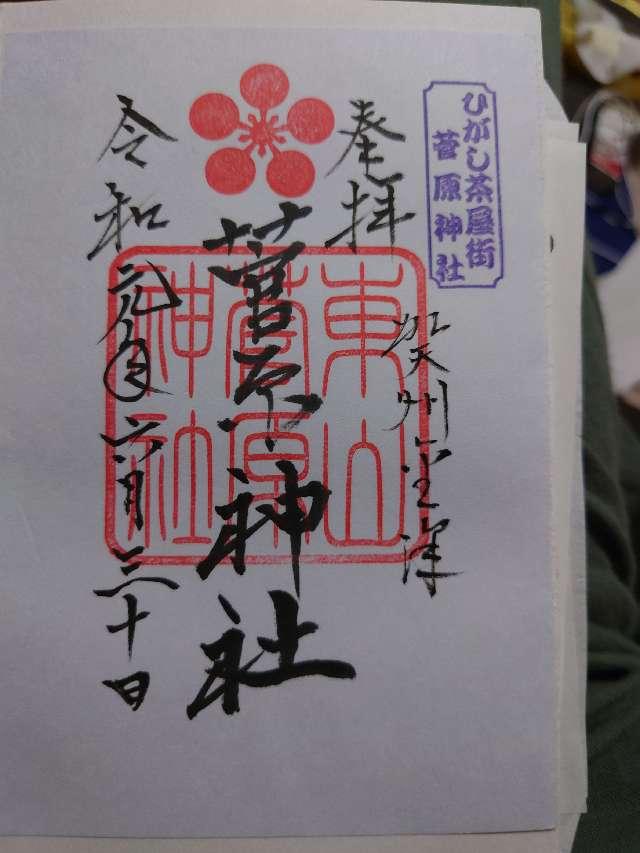 ひがし茶屋街
菅原神社
奉拝
加賀州金澤
東山
菅原
神社
菅原神社
令和元年六月三十日